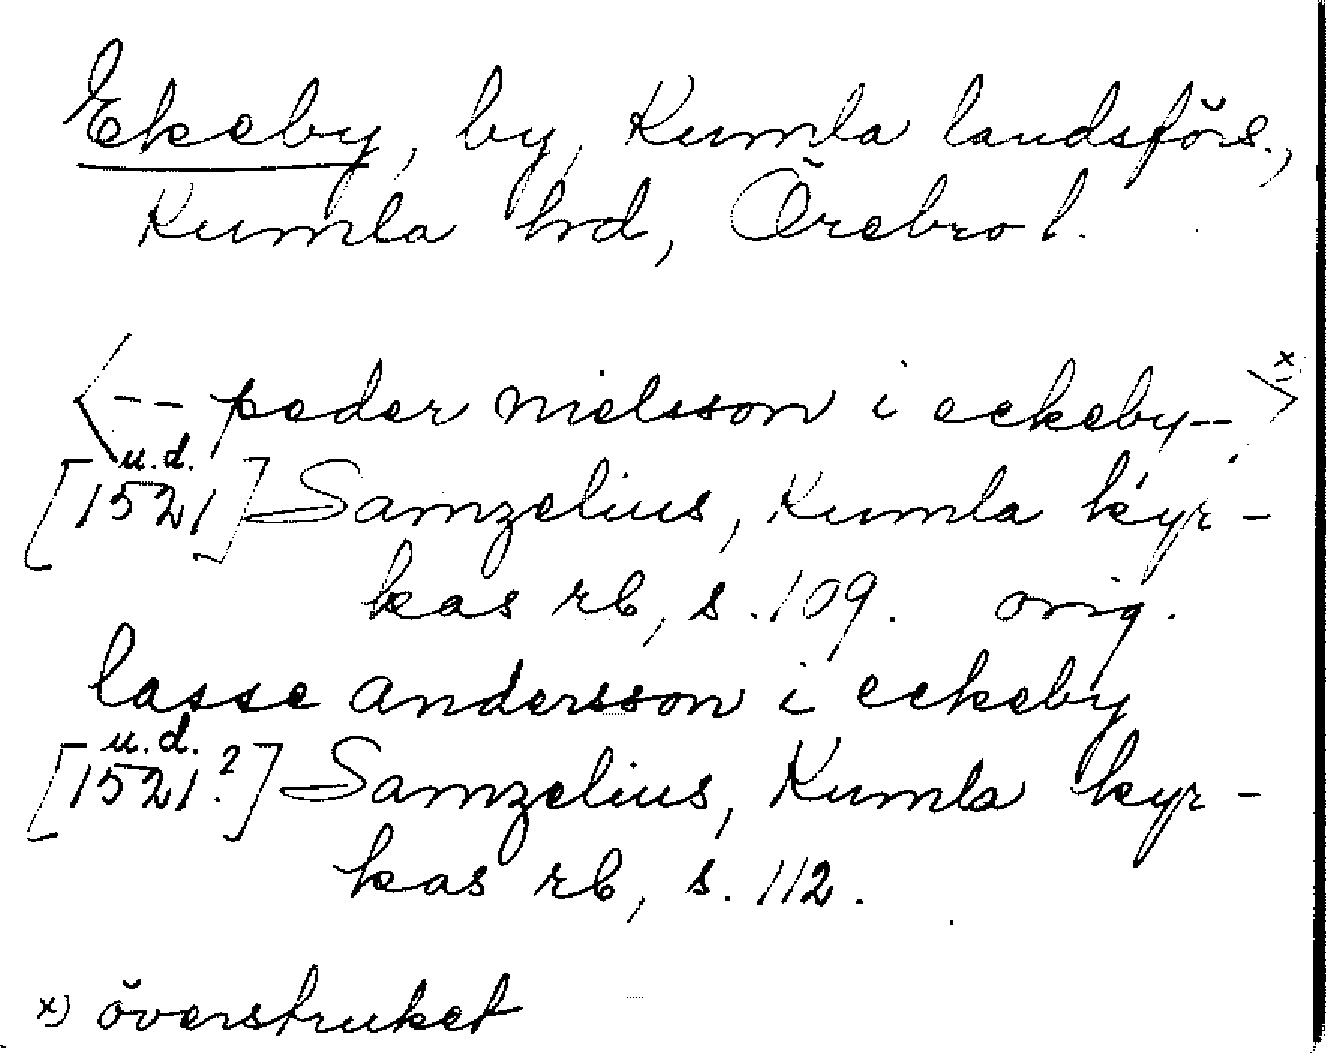 Ekeby, by, Kumla landsförs.,
Kumla hd, Örebro l.
<-- peder nielsson i eckeby-->x)
u.d.
[1521] Samzelius, Kumla kyr-
kas rb, s. 109. orig.
lasse andersson i eckeby
u.d.
[1521?] Samzelius, Kumla kyr-
kas rb, s. 112.
x) överstruket